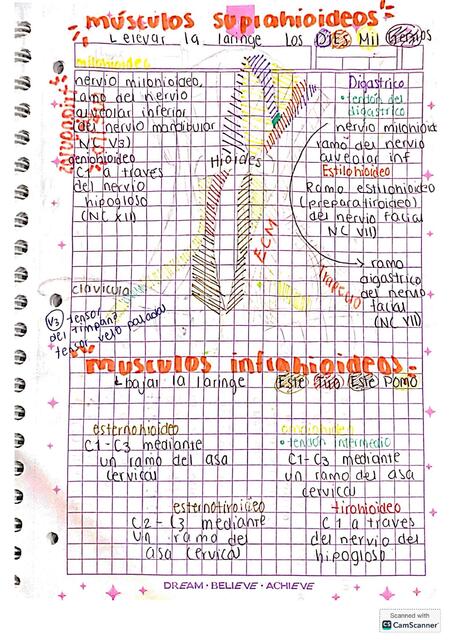 músculos suprahioideos
elevar la laringe los Di Es Mil Genios
milohioideo
nervio milohioideo,
ramo del nervio
alveolar inferior
del nervio mandibular
NC V3)
geniohioideo
C1 a través
del nervio
hipogloso
(NC XII)
Hioides
Digastrico
• tendon del
digastrico
nervio milohioid
ramo del nervio
alveolar inf
Estilohioideo
Ramo estilohioideo
(preparatiroideo)
del nervio facial
NC VII)
ramo
digastrico
del nervio
facial
(NC VII)
ECM
trapecio
clavicula
V3 tensor
del timpano
tensor velo palador
musculos infrahioideos
bajar la laringe Este Tiro Este Pomo
esternohioideo
C1-C3 mediante
un ramo del asa
cervical
omohioideo
• tension intermedio
C1-C3 mediante
un ramo del asa
cervical
esternotiroideo
C2-C3 mediante
un ramo del
asa cervical
tirohioideo
C1 a traves
del nervio del
hipogloso
DREAM • BELIEVE • ACHIEVE
Scanned with
CS CamScanner